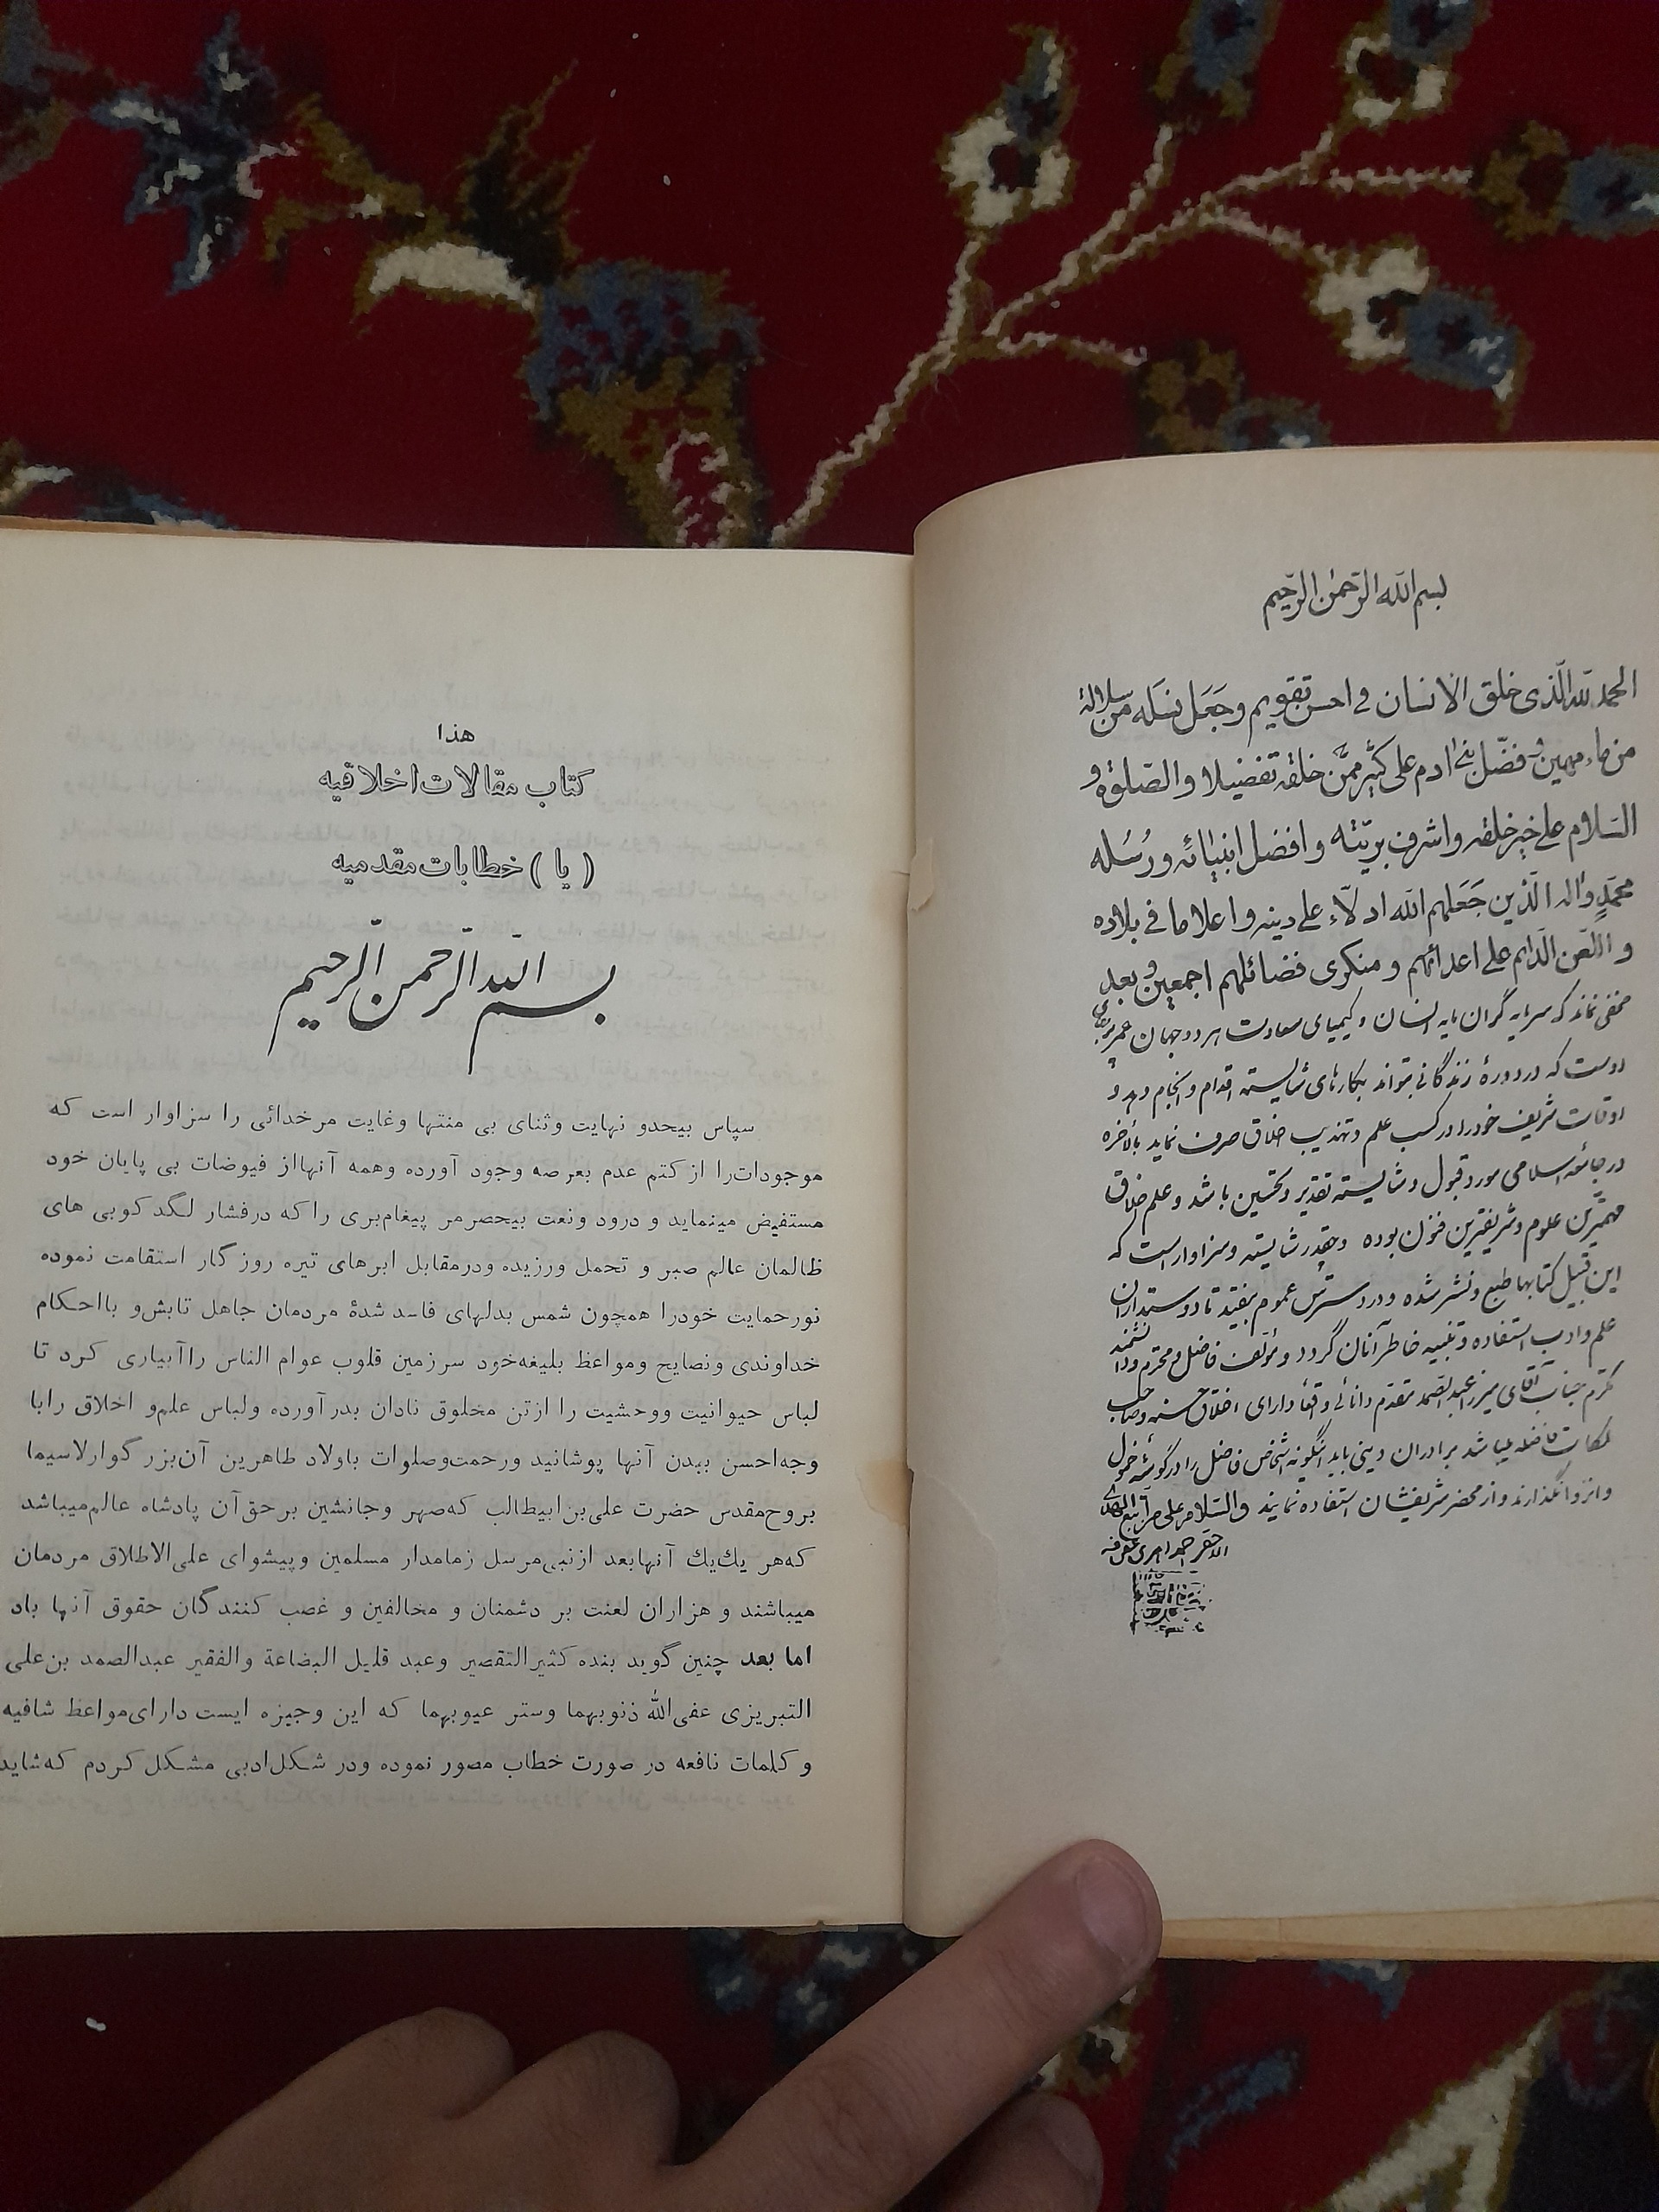 بسم الله الرّحمٰن الرّحیم
الحمد للّه الّذی خلق الانسان فی احسن تقویم وجَعَل نسَله من سلالة
من ماء مهین و فضّل بنی آدم علی کثیر ممّن خلقه تفضیلا والصّلوة و
السَلام علی خیر خلقه واشرف بریّته و افضل انبیائه ورُسُله
محمّدٍ واله الّذین جَعَلهم الله ادلّاء علی دینه واعلاما فی بلاده
و اللّعن الدّائم علی اعدائهم و منکری فضائلهم اجمعین و بعد
مخفی نماند که سرمایه گران مایه انسان و کیمیای سعادت هر دو جهان عمر
اوست که در دورهٔ زندگانی بتواند بکارهای شایسته اقدام و انجام دهد و
اوقات شریف خود را در کسب علم و تهذیب اخلاق صرف نماید بالاخره
در جامعه اسلامی مورد قبول و شایسته تقدیر و تحسین باشد و علم اخلاق
مهمترین علوم و شریفترین فنون بوده وچقدر شایسته وسزاوار است که
این قبیل کتابها طبع و نشر شده و در دسترس عموم بیفتد تا دوستداران
علم و ادب استفاده و تنبیه خاطر آنان گردد و مؤلف فاضل محترم و دانشمند
مکرم جناب آقای میرزا عبدالصمد مقدم دانائی واقعا دارای اخلاق حسنه وصاحب
ملکات فاضله میباشد برادران دینی باید اینگونه اشخاص فاضل را در گوشه خمول
و انزوا نگذارند و از محضر شریفشان استفاده نمایند والسّلام علی من اتبع الهدی
الاحقر
هذا
کتاب مقالات اخلاقیه
( یا ) خطابات مقدمیه
بسم الله الرّحمن الرّحیم
سپاس بیحدو نهایت وثنای بی منتها وغایت مرخدائی را سزاوار است که
موجودات‌را از کتم عدم بعرصه وجود آورده وهمه آنهااز فیوضات بی پایان خود
مستفیض مینماید و درود ونعت بیحصرمر پیغام‌بری را که درفشار لگد کوبی های
ظالمان عالم صبر و تحمل ورزیده ودرمقابل ابرهای تیره روز گار استقامت نموده
نورحمایت خودرا همچون شمس بدلهای فاسد شدهٔ مردمان جاهل تابش‌و بااحکام
خداوندی ونصایح ومواعظ بلیغه‌خود سرزمین قلوب عوام الناس راآبیاری کرد تا
لباس حیوانیت ووحشیت را ازتن مخلوق نادان بدرآورده ولباس علم‌و اخلاق رابا
وجه‌احسن ببدن آنها پوشانید ورحمت‌وصلوات باولاد طاهرین آن‌بزر گوارلاسیما
بروح‌مقدس حضرت علی‌بن‌ابیطالب که‌صهر وجانشین برحق‌آن پادشاه عالم‌میباشد
که‌هر یك‌یك آنهابعد ازنبی‌مرسل زمامدار مسلمین وپیشوای علی‌الاطلاق مردمان
میباشند و هزاران لعنت بر دشمنان و مخالفین و غصب کنندگان حقوق آنها باد
اما بعد چنین گوید بنده کثیرالتقصیر وعبد قلیل البضاعة والفقیر عبدالصمد بن‌علی
التبریزی عفی‌الله ذنوبهما وستر عیوبهما که این وجیزه ایست دارای‌مواعظ شافیه
و کلمات نافعه در صورت خطاب مصور نموده ودر شکل‌ادبی مشکل کردم که‌شاید